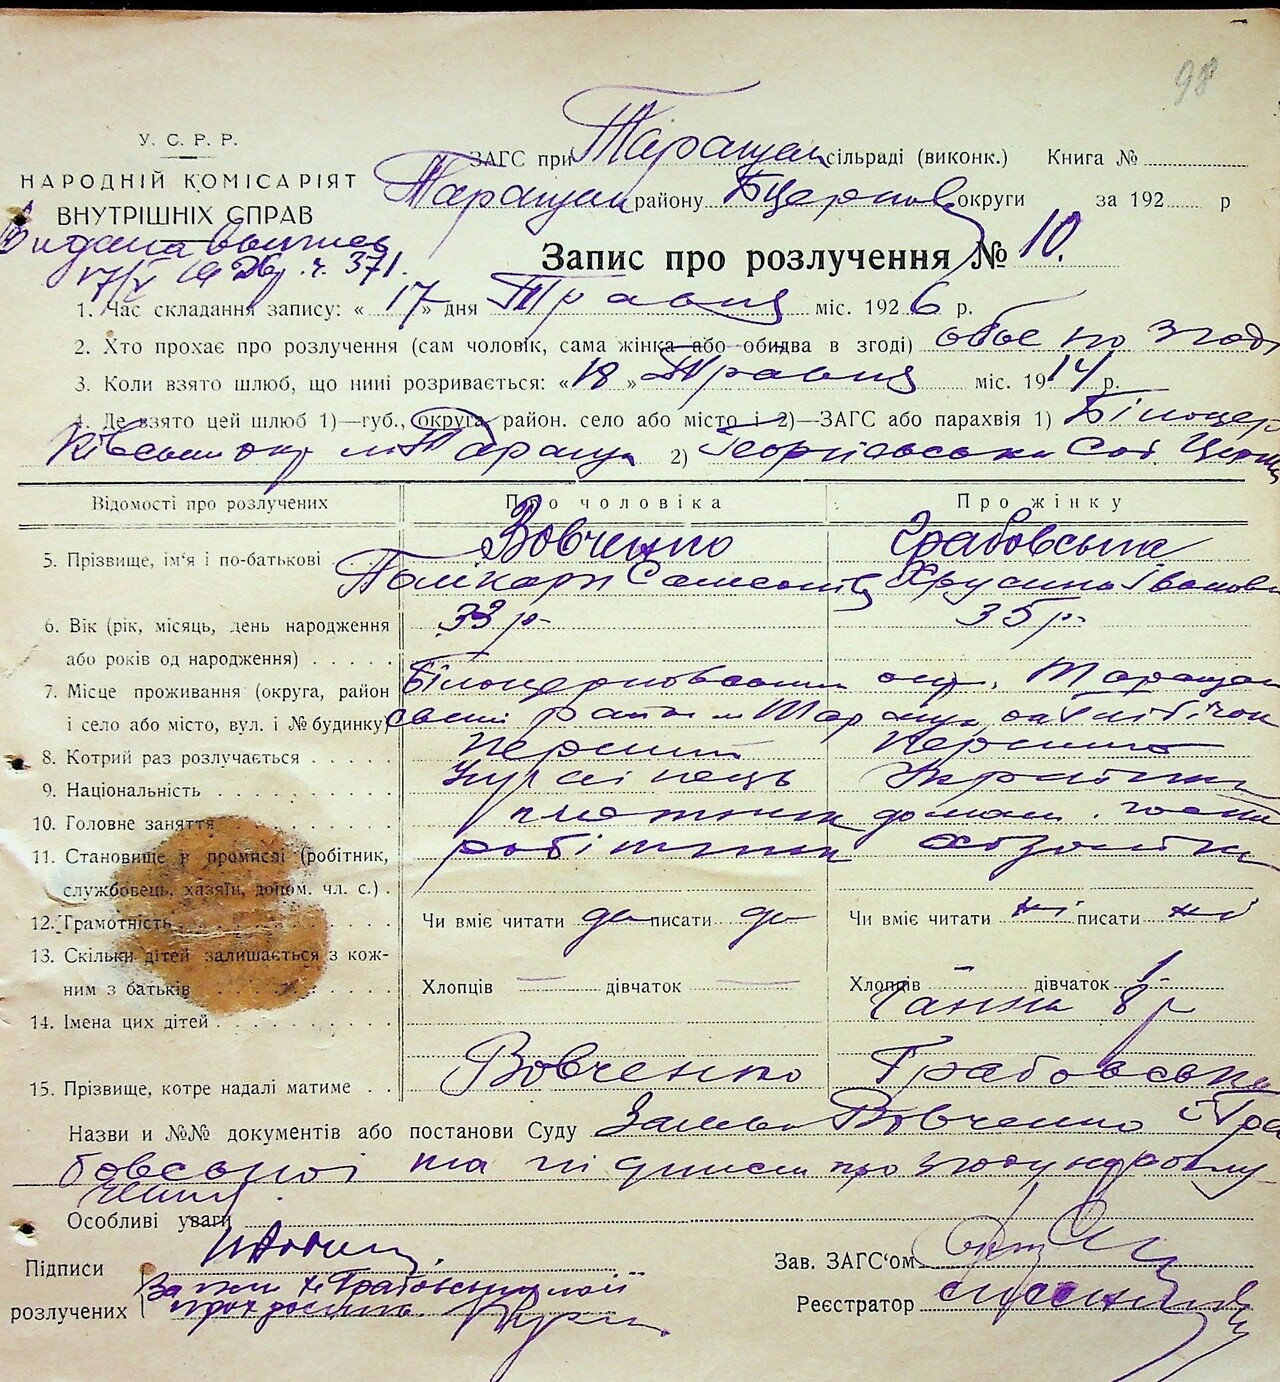 98
У. С. Р. Р.
НАРОДНІЙ КОМІСАРІЯТ
ВНУТРІШНІХ СПРАВ
Видана выпись
17/V 1926 р. ч. 371.
ЗАГС при Таращан сільраді (виконк.) Книга №
Таращан району БЦерков округи за 192 р
Запис про розлучення № 10.
1. Час складання запису: « 17 » дня Травня міс. 1926 р.
2. Хто прохає про розлучення (сам чоловік, сама жінка або обидва в згоді) обоє по згоді
3. Коли взято шлюб, що нині розривається: « 18 » Травня міс. 1914 р.
4. Де взято цей шлюб 1)—губ., округа, район. село або місто і 2)—ЗАГС або парахвія 1) Білоцер
ківськи окр м Тараща 2) Георгіевськи Соб. Церкв
Відомості про розлучених Про чоловіка Про жінку
5. Прізвище, ім'я і по-батькові Вовченко Грабовська
Полікарп Самсонів Хрусина Іванови
6. Вік (рік, місяць, день народження 33 р 35 р.
або років од народження)
7. Місце проживання (округа, район Білоцерковськи окр. Таращан
і село або місто, вул. і № будинку) ськи район м Тараща
8. Котрий раз розлучається Перший Перший
9. Національність Українець Українка
10. Головне заняття плотник домаш. госп
11. Становище в промислі (робітник, робітник хозяйка
службовець, хазяїн, допом. чл. с.)
12. Грамотність Чи вміє читати да писати да Чи вміє читати ні писати ні
13. Скільки дітей залишається з кож-
ним з батьків Хлопців — дівчаток — Хлопців - дівчаток 1
14. Імена цих дітей Ганна 8 р
15. Прізвище, котре надалі матиме Вовченко Грабовська
Назви и №№ документів або постанови Суду Заява Вовченко і Гра
бовської та підписи про згоду на розлу-
чення.
Особливі уваги
Підписи
розлучених
За неи Хр Грабовську
Зав. ЗАГС'ом
Реєстратор